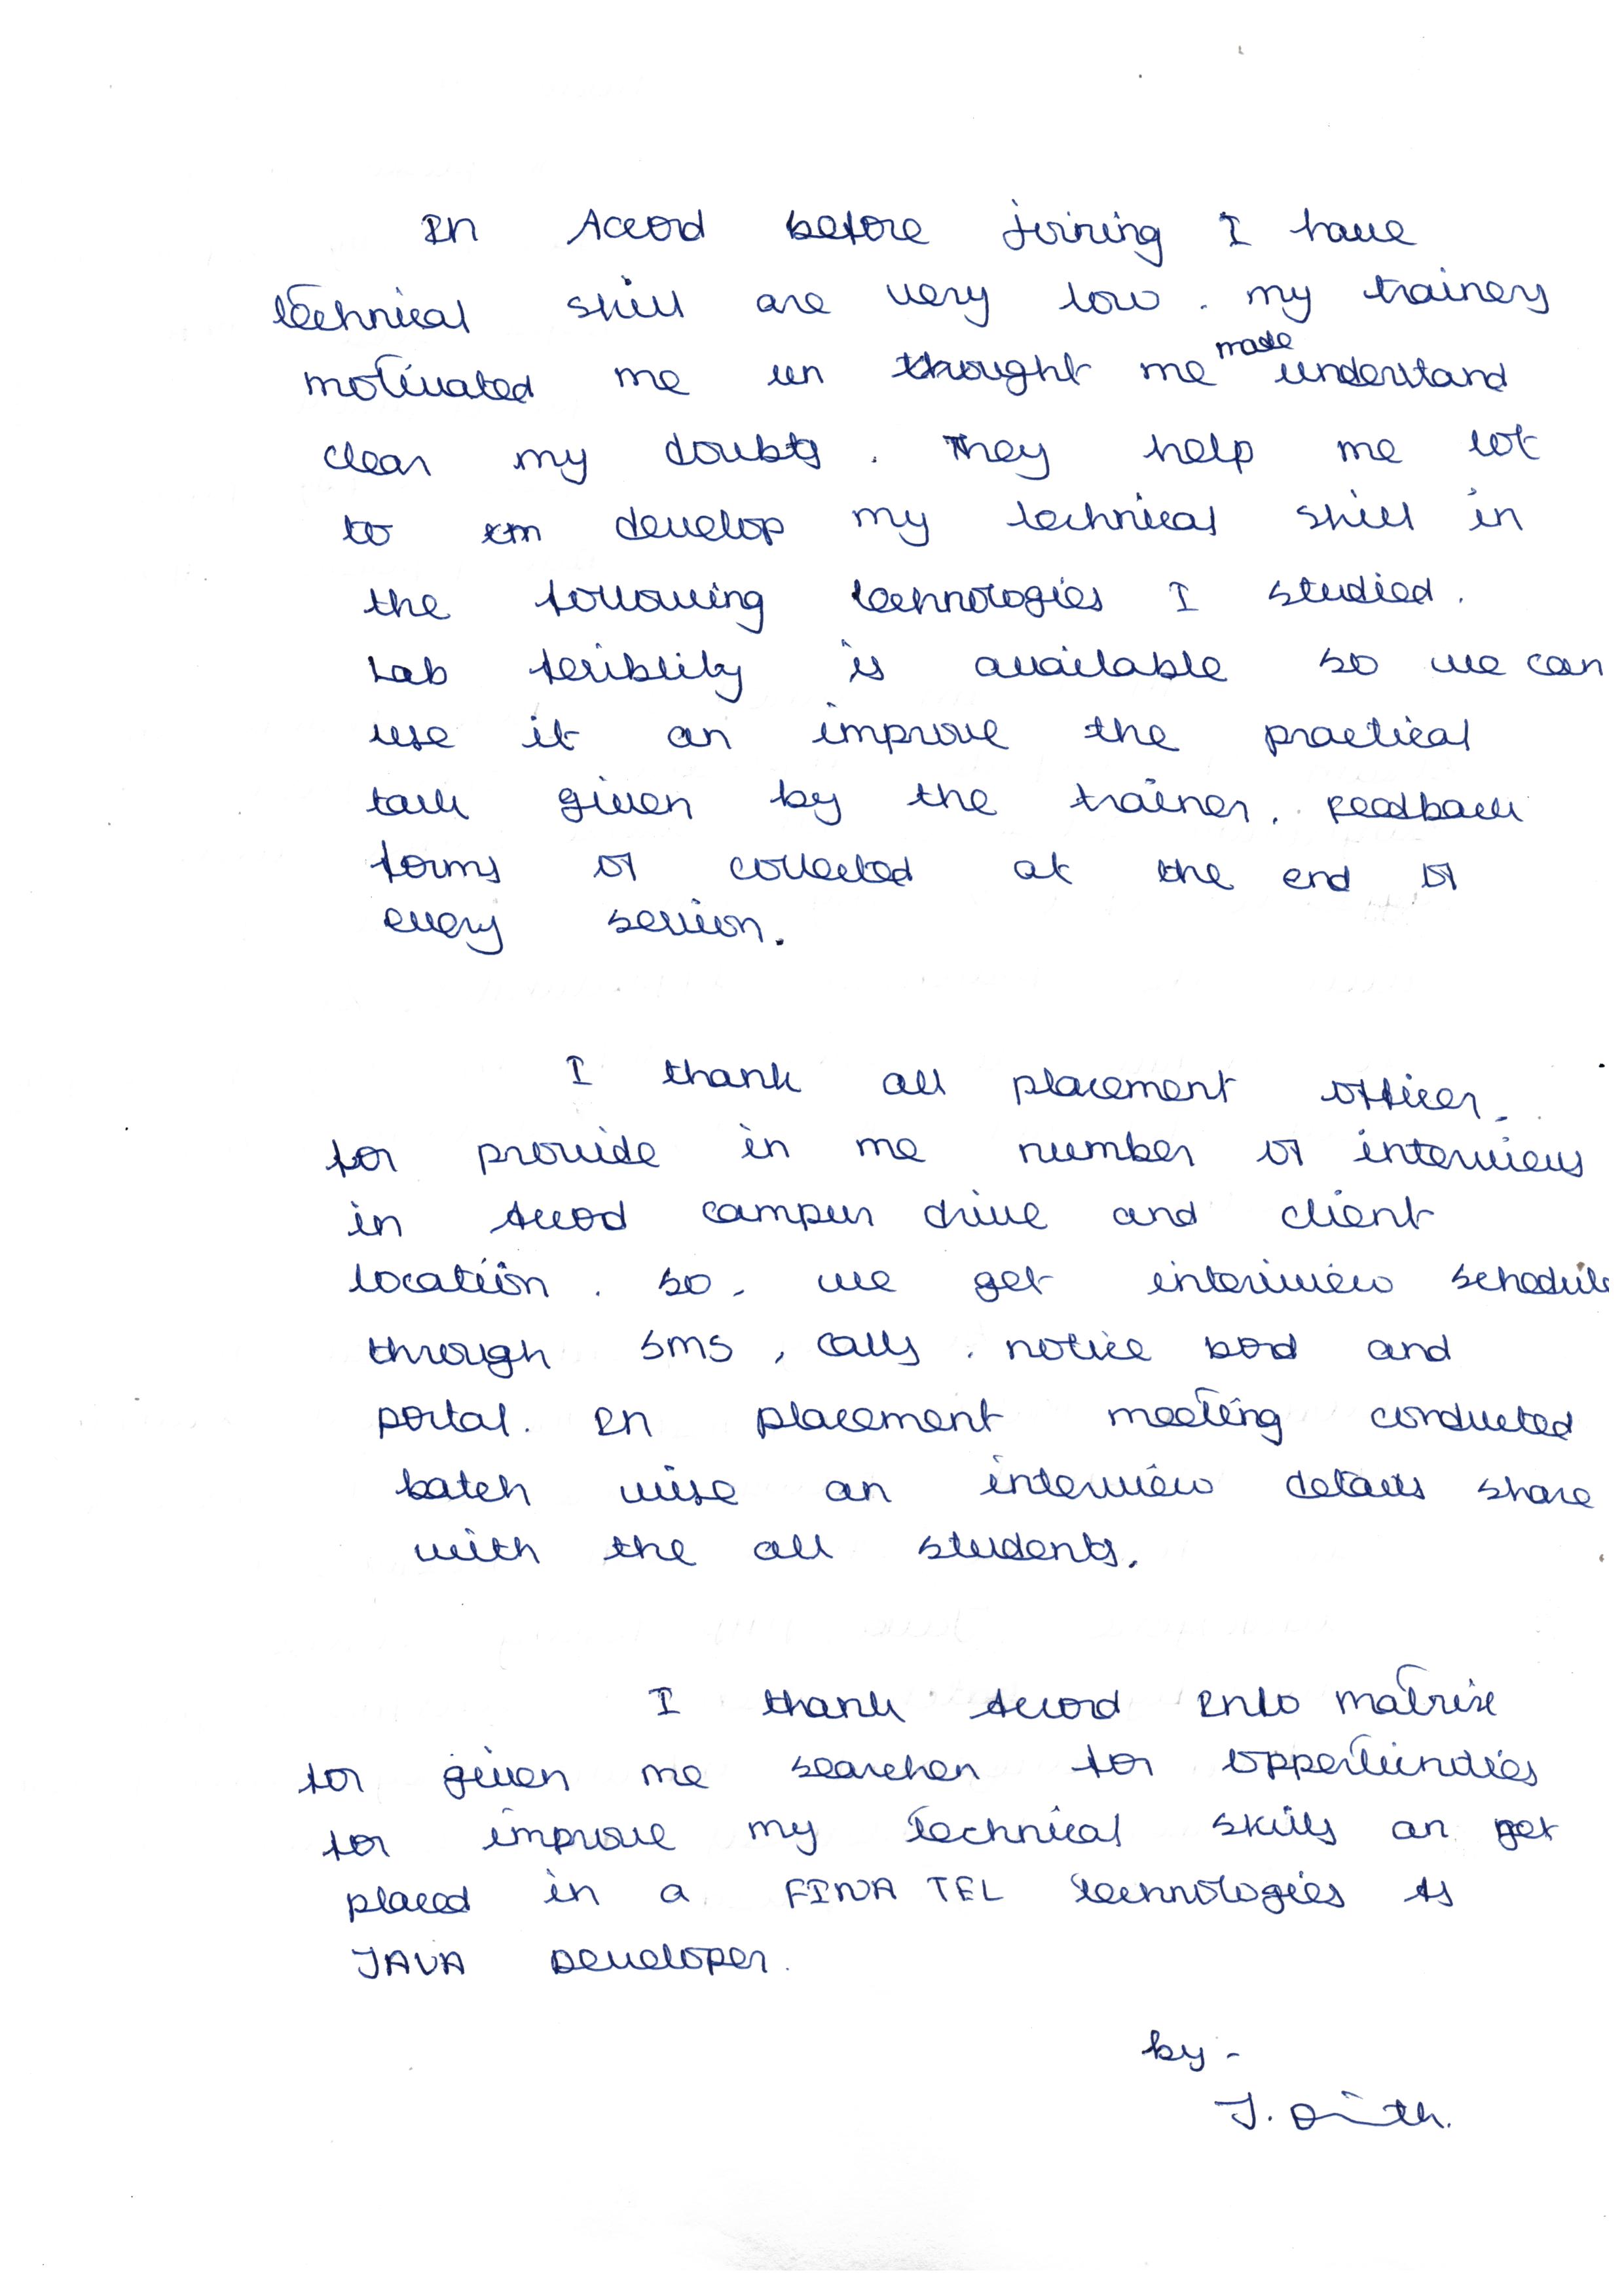 In Accord before joining I have
technical skill are very low. my trainers
motivated me un thought me made understand
clear my doubts. They help me lot
to develop my technical skill in
the following technologies I studied.
Lab is available so we can
use it an improve the practical
task given by the trainer. Feedback
forms of collected at the end of
every session.
I thank all placement officer.
for provide in me number of interviews
in Accod campus drive and client
location. so, we get interview schedule
through SMS, calls, notice bod and
portal. In placement meeting conducted
batch wise an interview details share
with the all students.
I thank Accord Info matrix
for given me searcher for
for improve my technical skills an get
placed in a FINATEL technologies As
JAVA Developer.
by -
J.